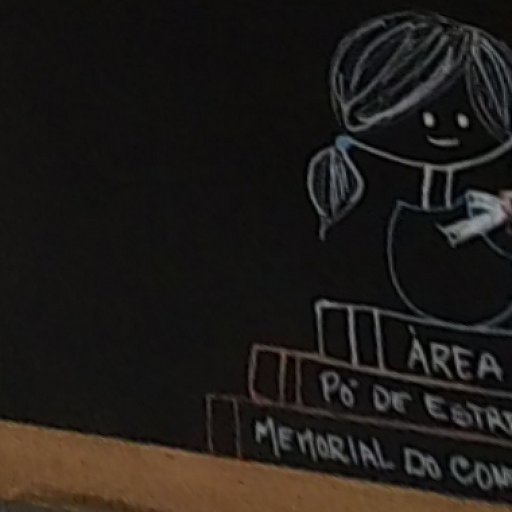 ÀREA
PÓ DE ESTR
MEMORIAL DO CON